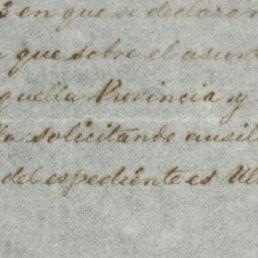 3 en que se declaran
que sobre el asunt
quella Provincia y
la solicitando ausil
del espediente es Ul